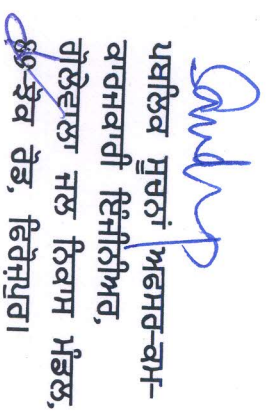 ਪਬਲਿਕ ਸੂਚਨਾਂ ਅਫਸਰ-ਕਮ-
ਕਾਰਜਕਾਰੀ ਇੰਜੀਨੀਅਰ,
ਗੋਲੇਵਾਲਾ ਜਲ ਨਿਕਾਸ ਮੰਡਲ,
ਰੋਡ, ਫਿਰੋਜ਼ਪੁਰ।